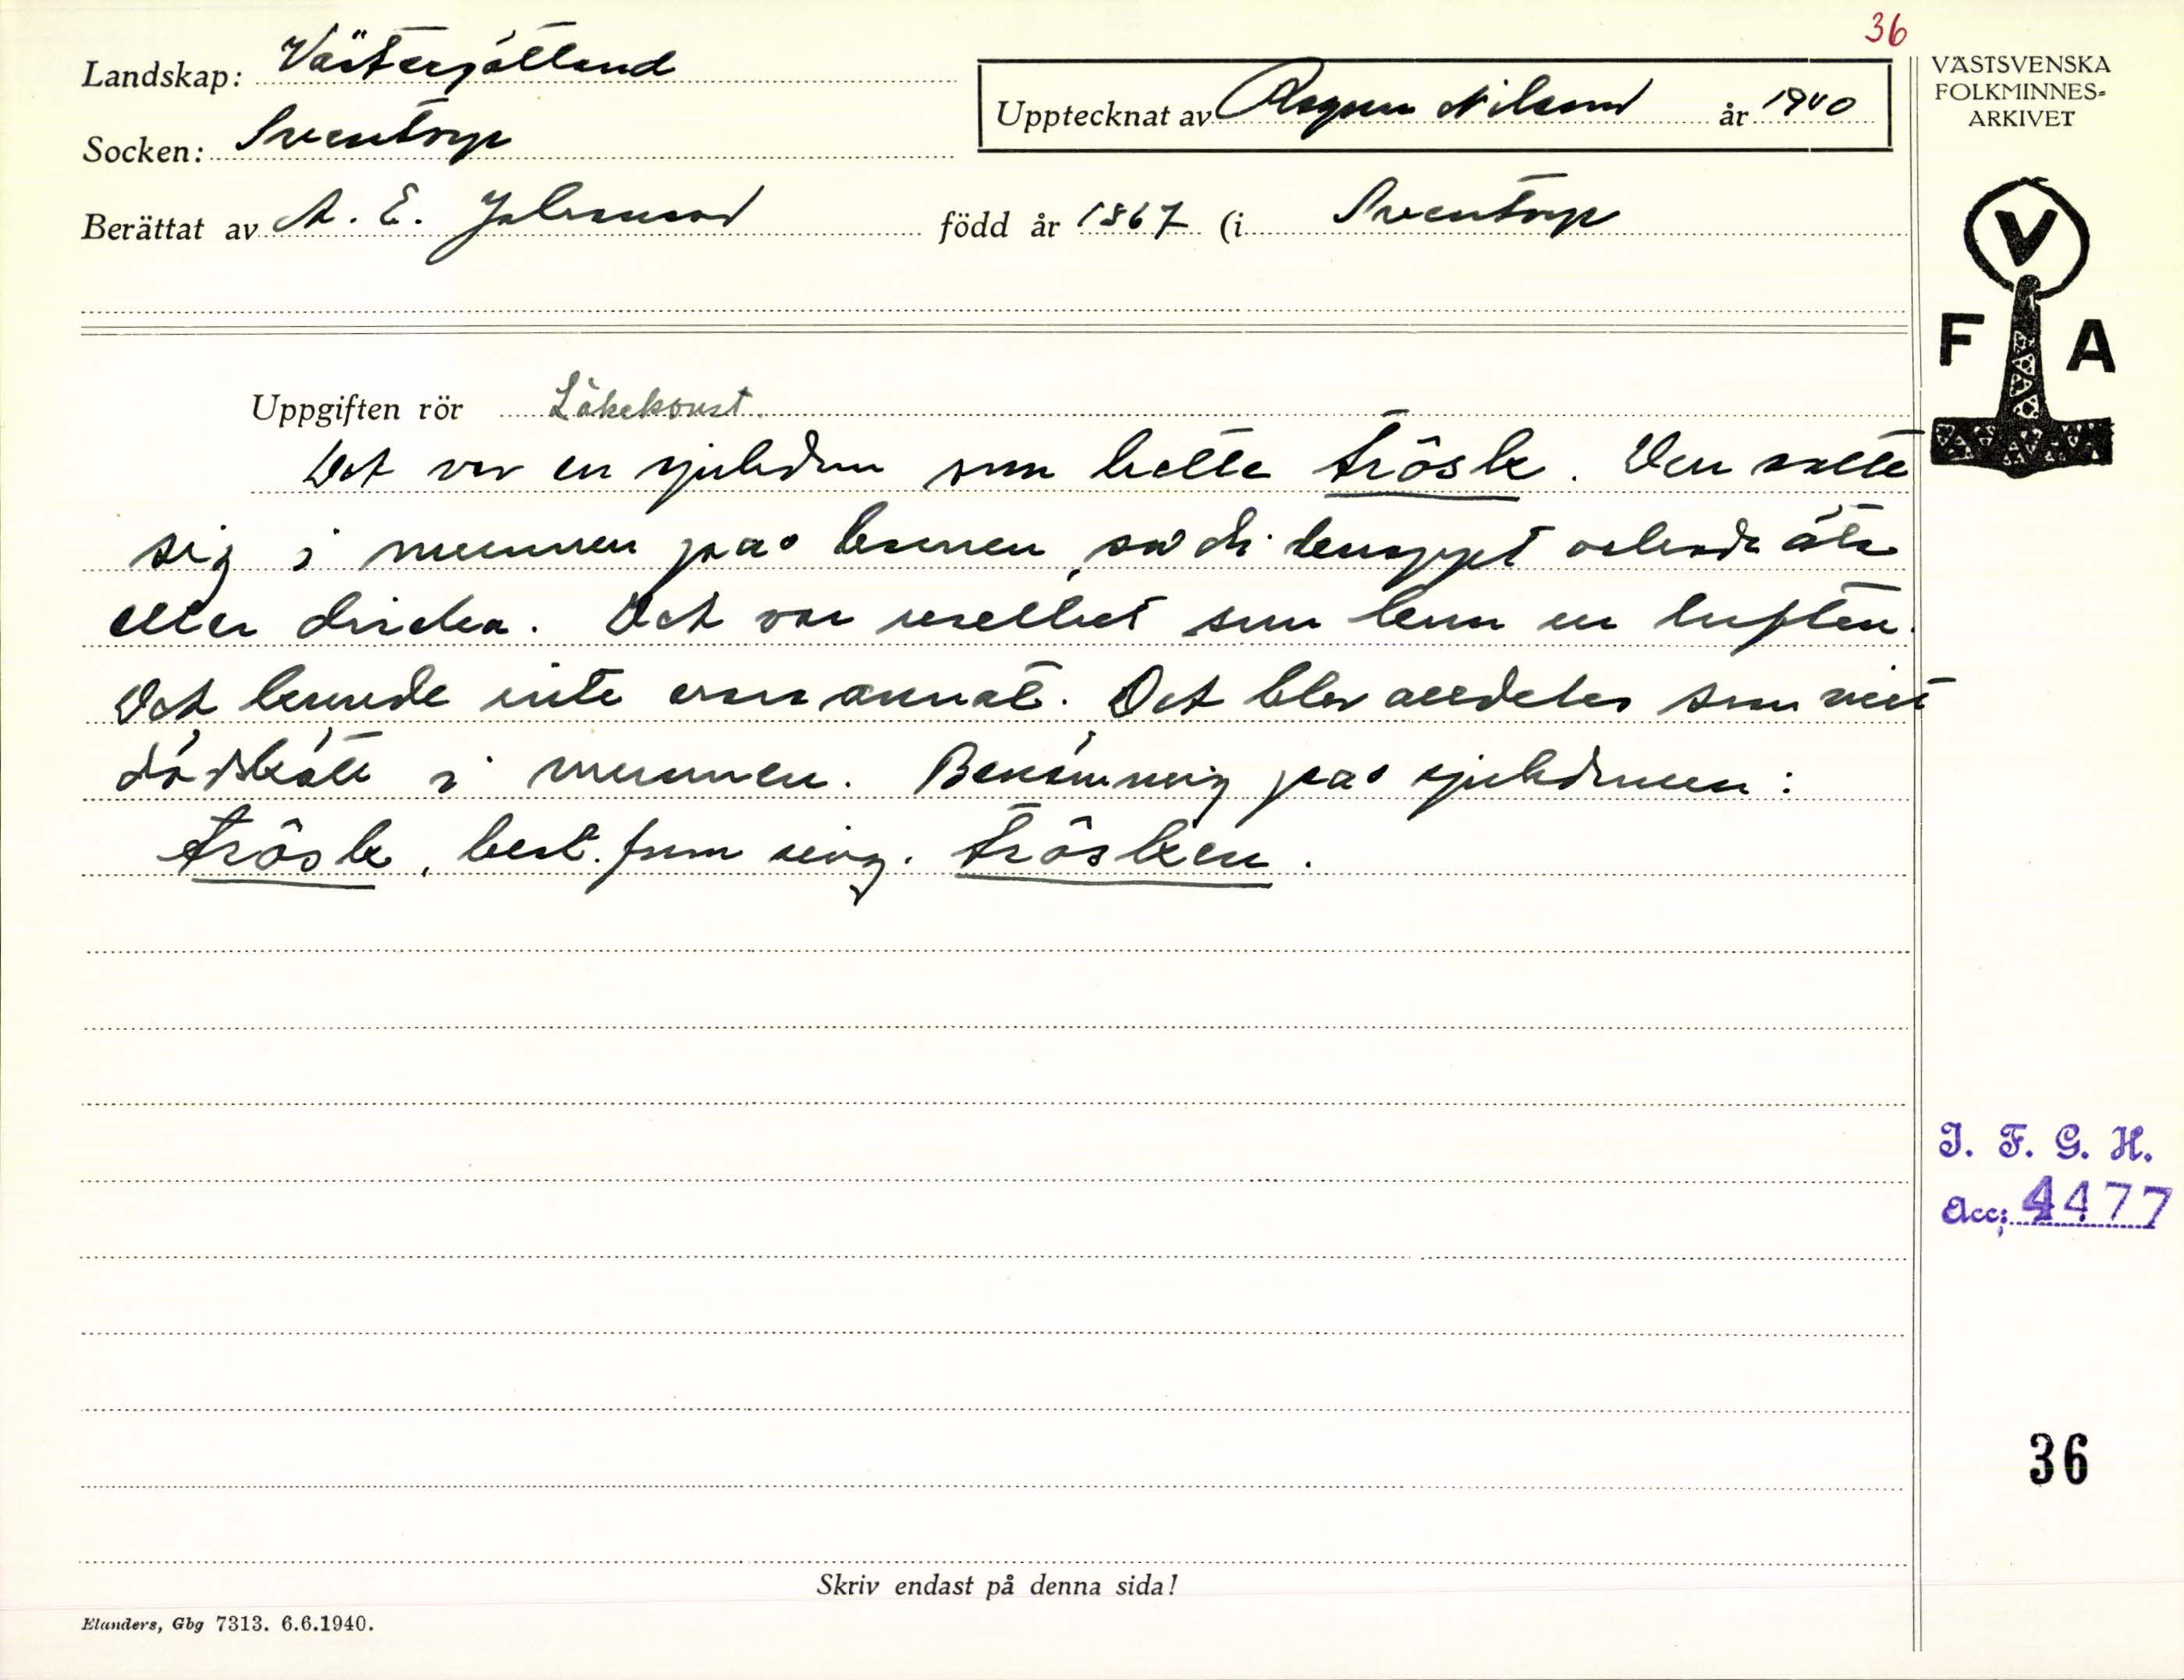 36
Landskap: Västergötland
Upptecknat av Ragnar Nilsson år 1940
Socken: Sventorp
Berättat av A. E. Johansson född år 1867 (i Sventorp
VÄSTSVENSKA
FOLKMINNES-
ARKIVET
V
F A
Uppgiften rör Läkekonst.
Det var en sjukdom som hette trôsk. Den satte
sig i munnen på barnen, så di knappt orkade äta
eller dricka. Det var som kom ur luften.
Det kunde inte vara annat. Det blev alldeles som vitt
dödskött i munnen. Benämning på sjukdomen:
trôsk, best. form sing. trôsken.
I. F. G. H.
Acc: 4477
36
Skriv endast på denna sida!
Elanders, Gbg 7313. 6.6.1940.